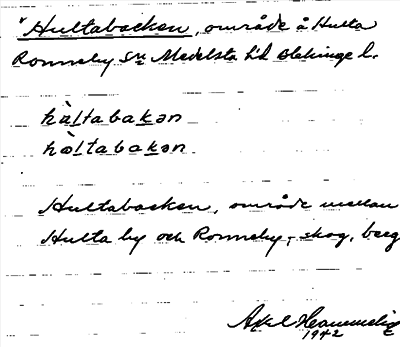 "Hultabacken, område å Hulta
Ronneby sn Medelsta hd Blekinge l.
hàltabakən
hàltabakən
Hultabacken, område mellan
Hulta by och Ronneby, skog, berg
Axel
1942